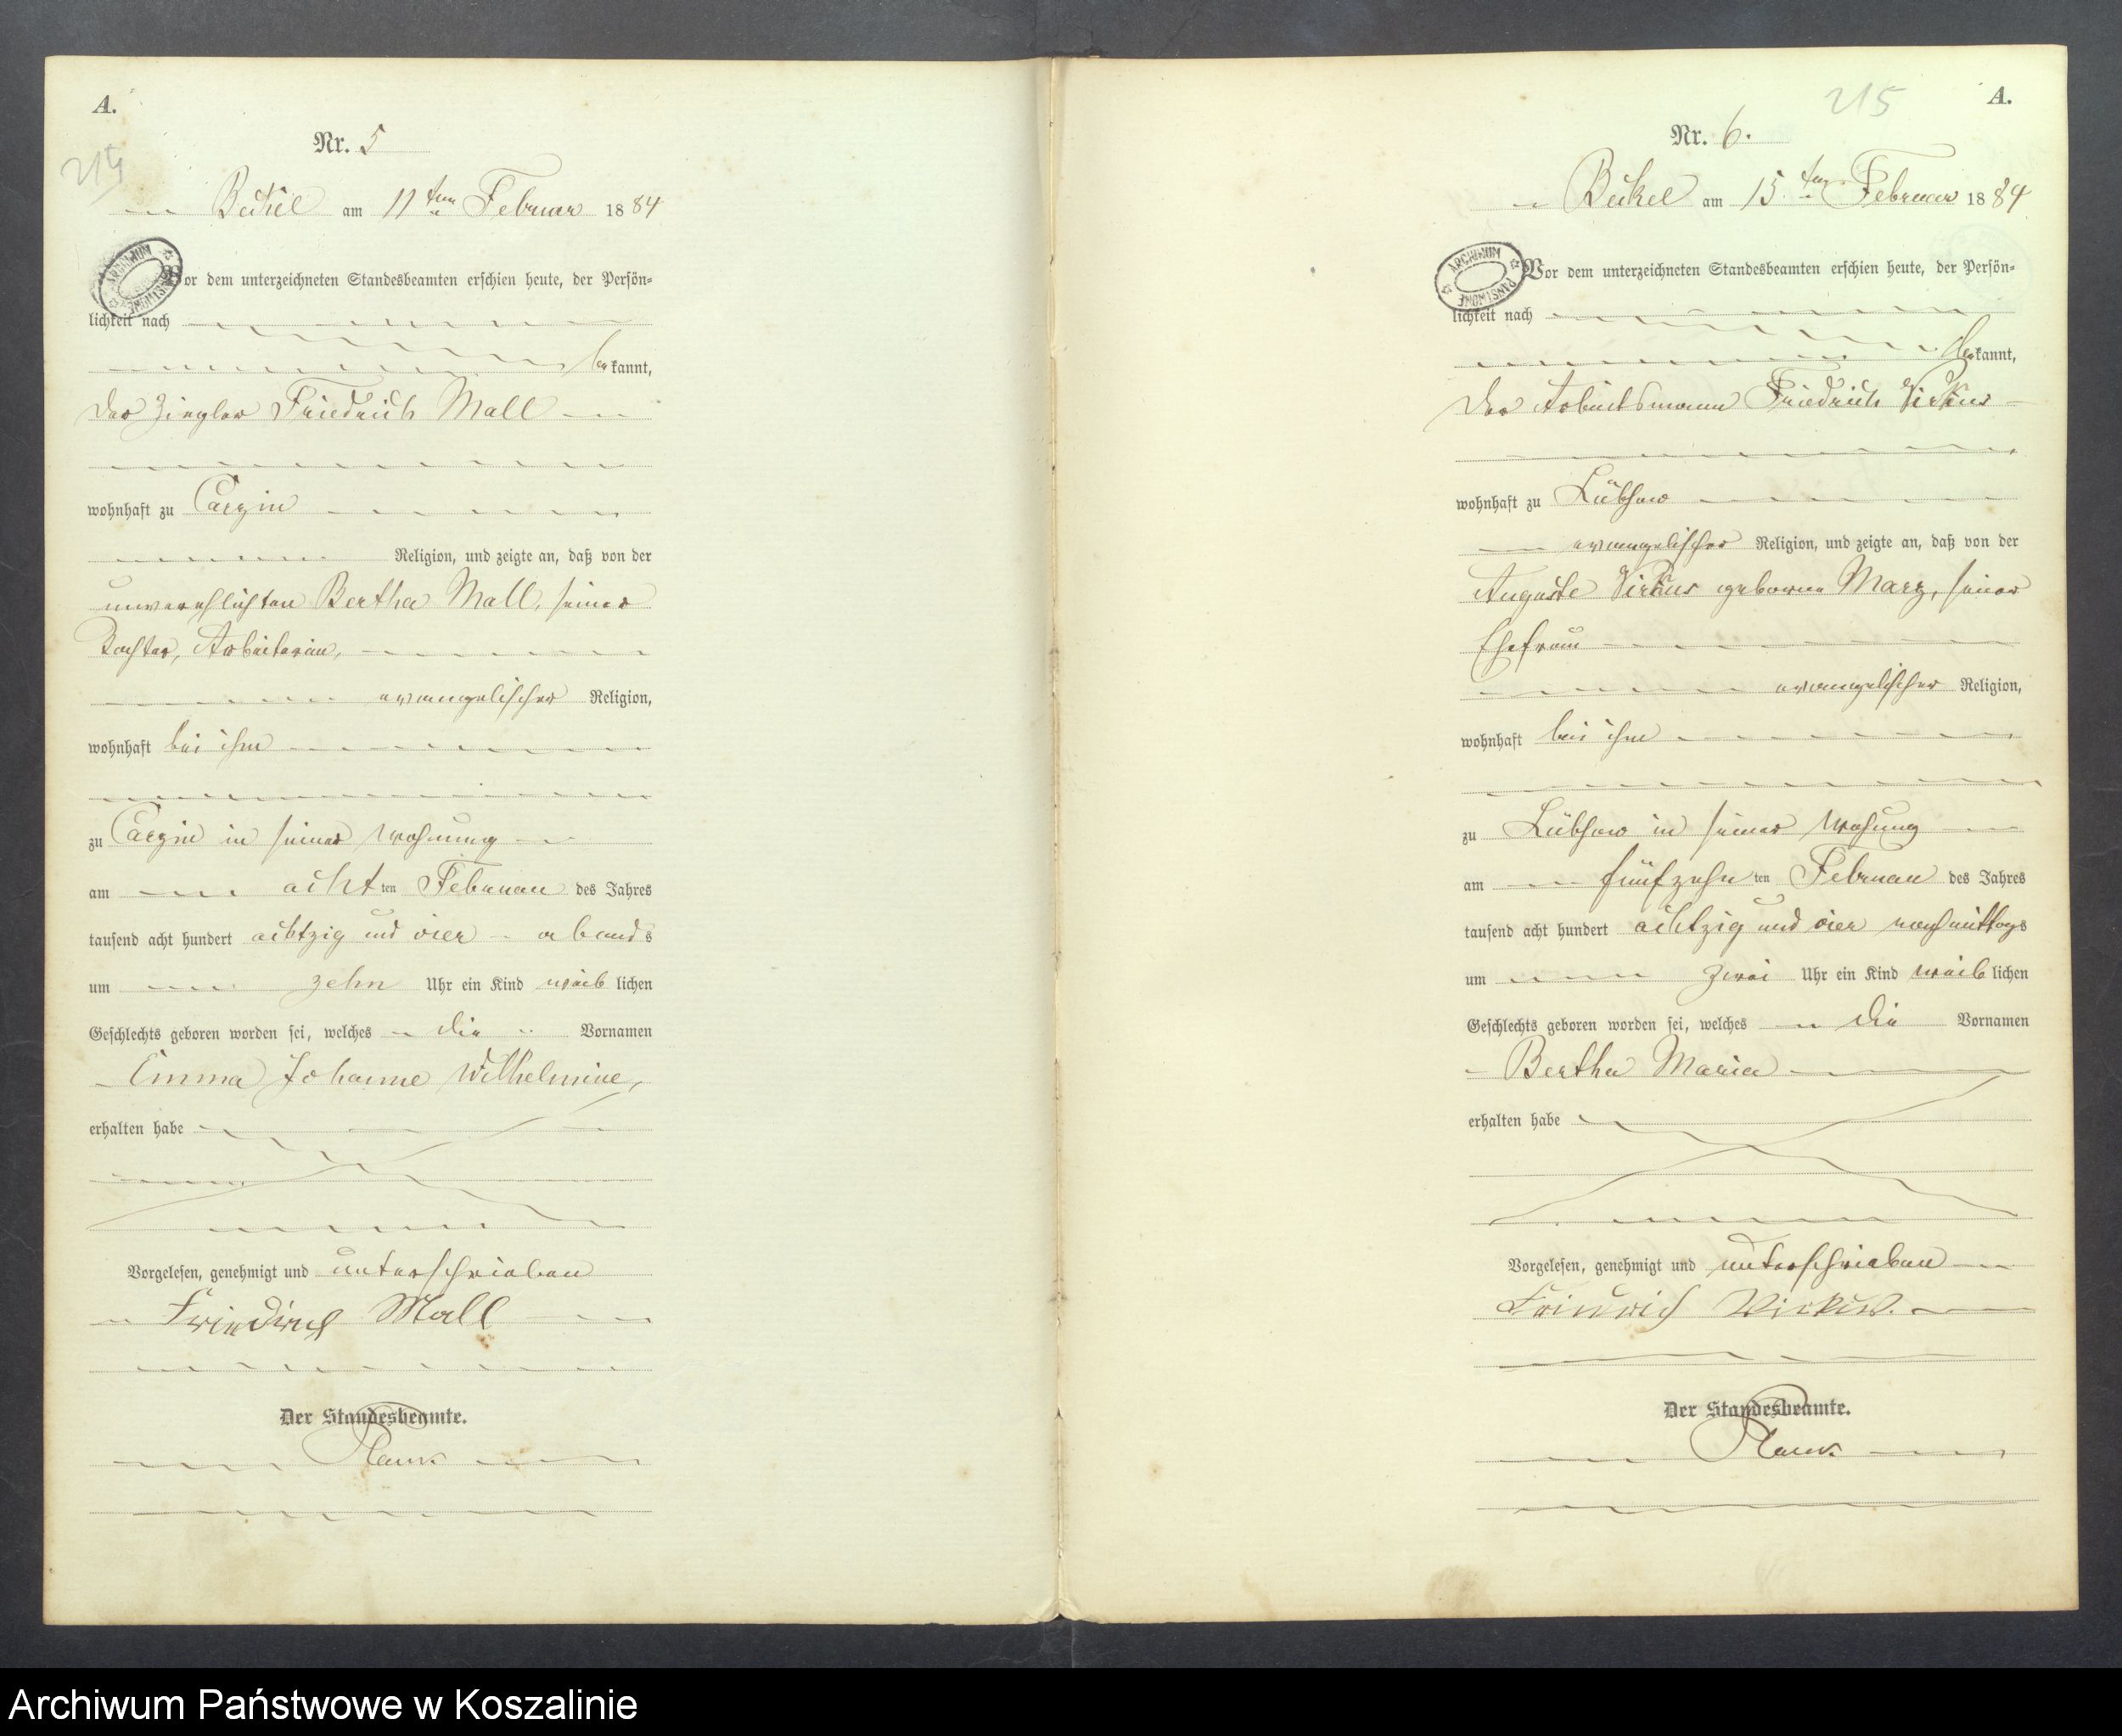 A.
214
Nr. 5
Beckel am 11ten Februar 1884
ARCHIWUM
Vor dem unterzeichneten Standesbeamten erschien heute, der Persön-
lichkeit nach
bekannt,
der Ziegler Friedrich Mall
wohnhaft zu Carzin
Religion, und zeigte an, daß von der
unverehlichten Bertha Mall, seiner
Tochter, Arbeiterin,
evangelischer Religion,
wohnhaft bei ihm
zu Carzin in seiner Wohnung
am achtten Februar des Jahres
tausend acht hundert achtzig und vier abends
um zehn Uhr ein Kind weiblichen
Geschlechts geboren worden sei, welches die Vornamen
Emma Johanne Wilhelmine,
erhalten habe
Vorgelesen, genehmigt und unterschrieben
Friedrich Mall
Der Standesbeamte.
215
A.
Nr. 6.
Beckel am 15.ten Februar 1884
ARCHIWUM
Vor dem unterzeichneten Standesbeamten erschien heute, der Persön-
lichkeit nach
bekannt,
der Arbeitsmann Friedrich Virkus
wohnhaft zu Lübzow
evangelischer Religion, und zeigte an, daß von der
Auguste Virkus geborne Marz, seiner
Ehefrau
evangelischer Religion,
wohnhaft bei ihm
zu Lübzow in seiner Wohung
am fünfzehnten Februar des Jahres
tausend acht hundert achtzig und vier nachmittags
um zwei Uhr ein Kind weiblichen
Geschlechts geboren worden sei, welches die Vornamen
Bertha Maria
erhalten habe
Vorgelesen, genehmigt und unterschrieben
Friedrich Virkus.
Der Standesbeamte.
Archiwum Państwowe w Koszalinie